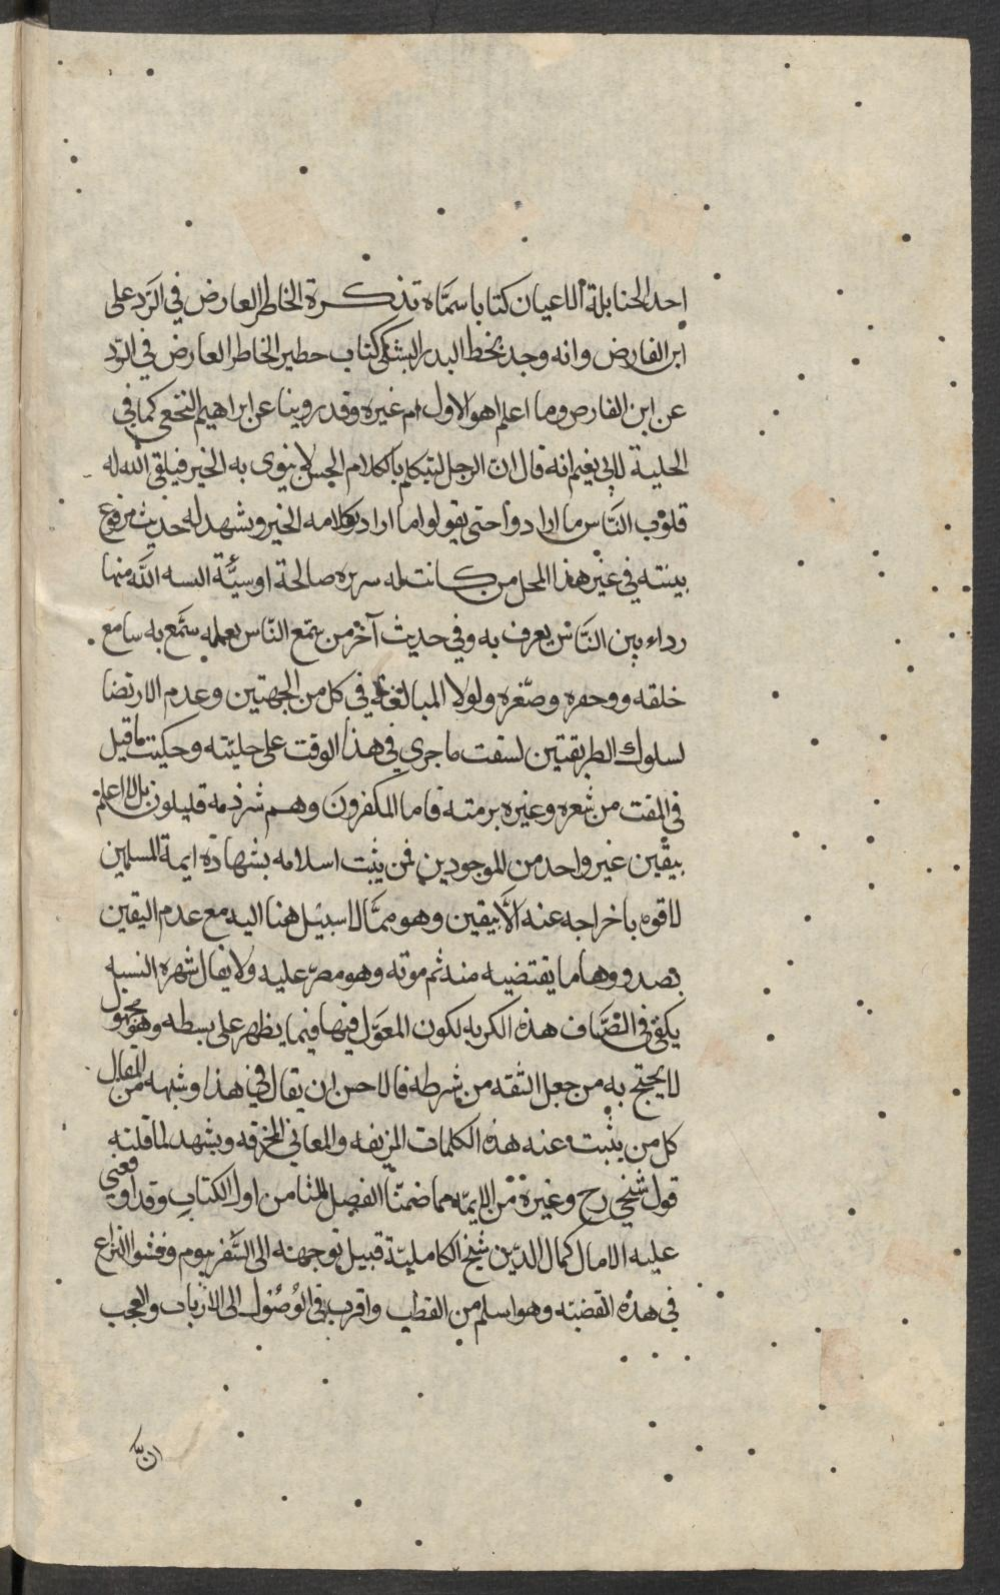 احد الحنابلة الاعيان كتابا سماه تذكرة الخاطر العارض في الرد على
ابن الفارض وانه وجد بخط البدر البشتكي كتاب حطير الخاطر العارض في الرد
عن ابن الفارض وما اعلم اهو الاول ام غيره وقد روينا عن ابراهيم النخعي كما في
الحلية لابي نعيم انه قال ان الرجل ليتكلم بالكلام الجس لا ينوي به الخير فيلقي الله له
قلوب الناس ما ارادوا حتى يقولوا ما اراد بكلامه الخير ويشهد له حديث مرفوع
بينته في غير هذا المحل من كانت له سريره صالحة او سيئة البسه الله منها
رداء بين الناس يعرف به وفي حديث آخر من سمع الناس بعمله سمع به سامع
خلقه ووحفره وصغره ولولا المبالغة في كل من الجهتين وعدم الارتضا
لسلوك الطريقتين لسقت ما جري في هذا الوقت على جليته وحكيت ما قيل
في المقت من شعره وغيره برمته فاما المكفرون وهم شرذمه قليلون بل لا اعلم
بيقين غير واحد من الموجودين فمن يثبت اسلامه بشهادة ايمة المسلمين
لا قوه باخراجه عنه الا بيقين وهو مما لا سبيل هنا اليه مع عدم اليقين
بصدووها ما يقتضيه منه ثم موته وهو مصر عليه ولا يقال شهره النسبه
يكفي في الصاف هذه الكريه لكون المعول فيها فيما يظهر على بسطه وهو مجهول
لا يحتج به من جعل الثقه من شرطه فالاحسن ان يقال في هذا وشبهه من المقال
كل من يثبت عنه هذه الكلمات المزيفه والمعاني المخرقه ويشهد لما قلته
قول شيخي رح وغيرة من الايمه مما ضمنا الفصل الثامن اول الكتاب وقد اوقعني
عليه الامال كمال الدين شيخ الكاملية قبيل توجهنه الى السفر بيوم وفشوا النزاع
في هذه القضيه وهو اسلم من القطب واقرب في الوصول الى الارباب والعجب
ان